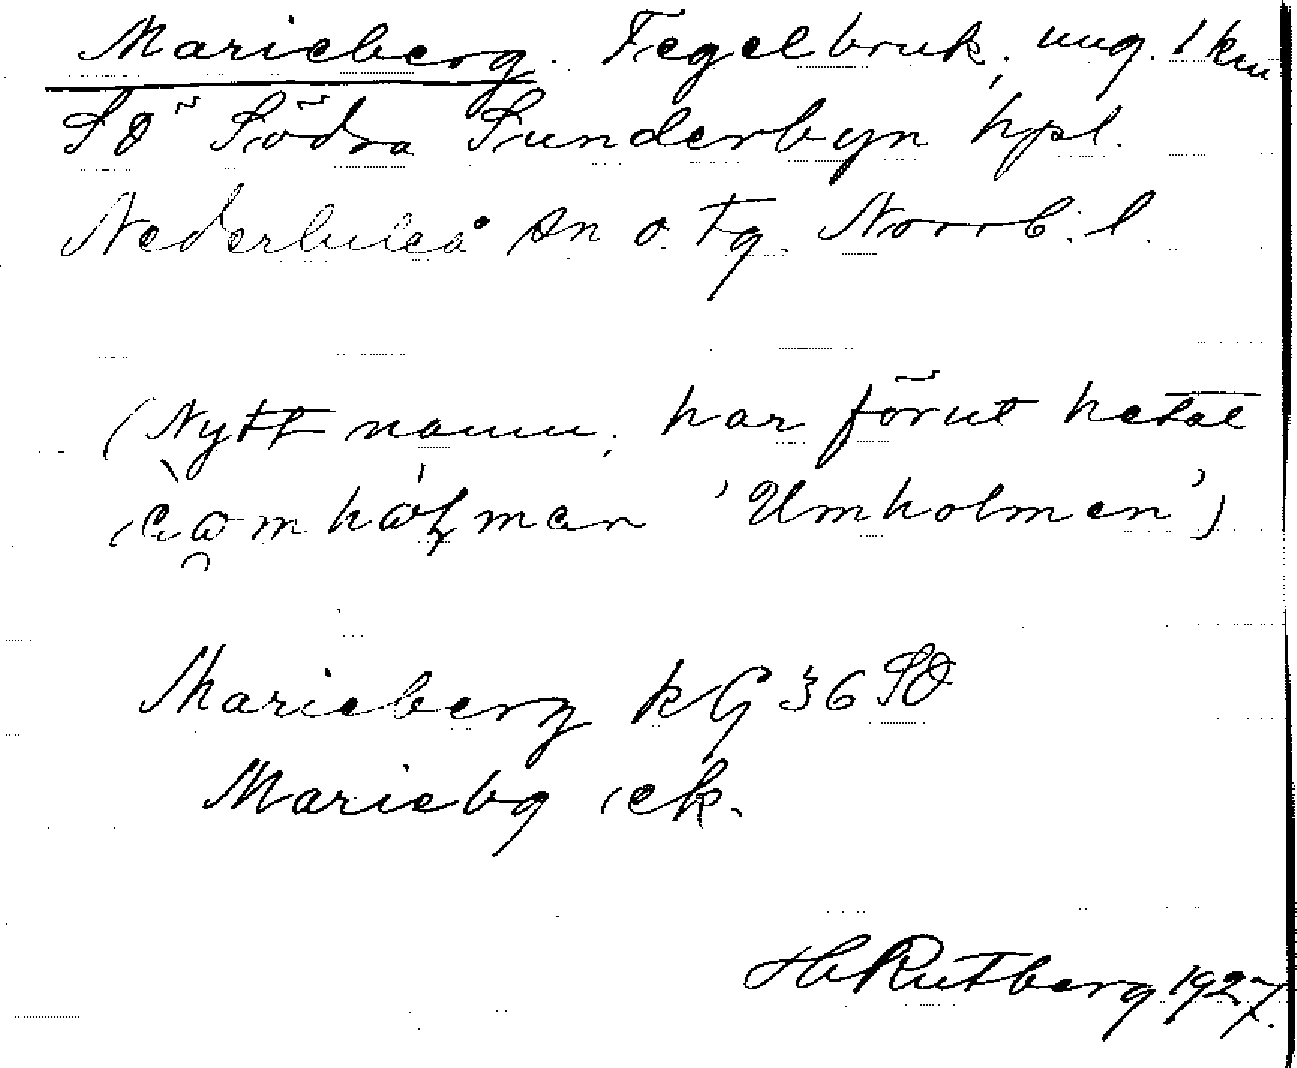 Marieberg. Tegelbruk, ung. 1 km
SÖ Södra Sunderbyn hpl.
Nederluleå sn o. tg. Norrb. l.
(Nytt namn, har förut hetat
'Umholmen')
Marieberg kG 36 SO
Mariebg ek.
H Rutberg 1927.